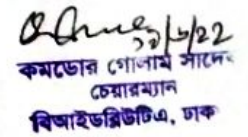 ১৯/৬/22
কমডোর গোলাম সাদেক
চেয়ারম্যান
বিআইডব্লিউটিএ, ঢাকা